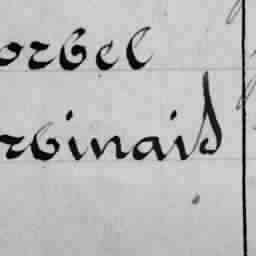 orbel
rbinais